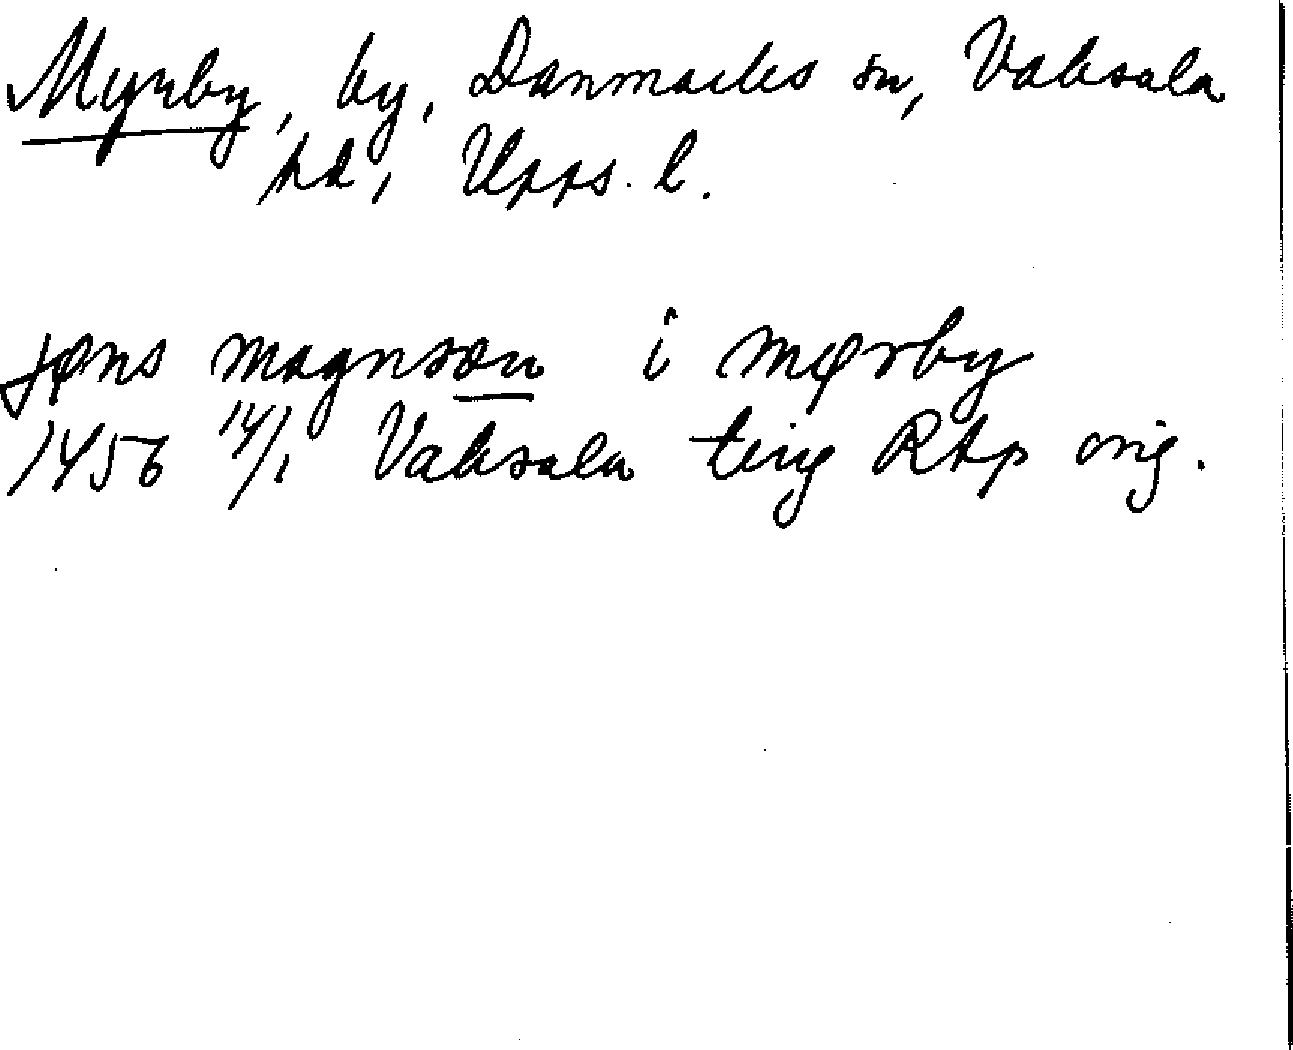 Myrby, by, Danmarks sn, Vaksala
hd, Upps. l.
jøns magnsøn i mørby
1456 14/1 Vaksala ting RAp orig.